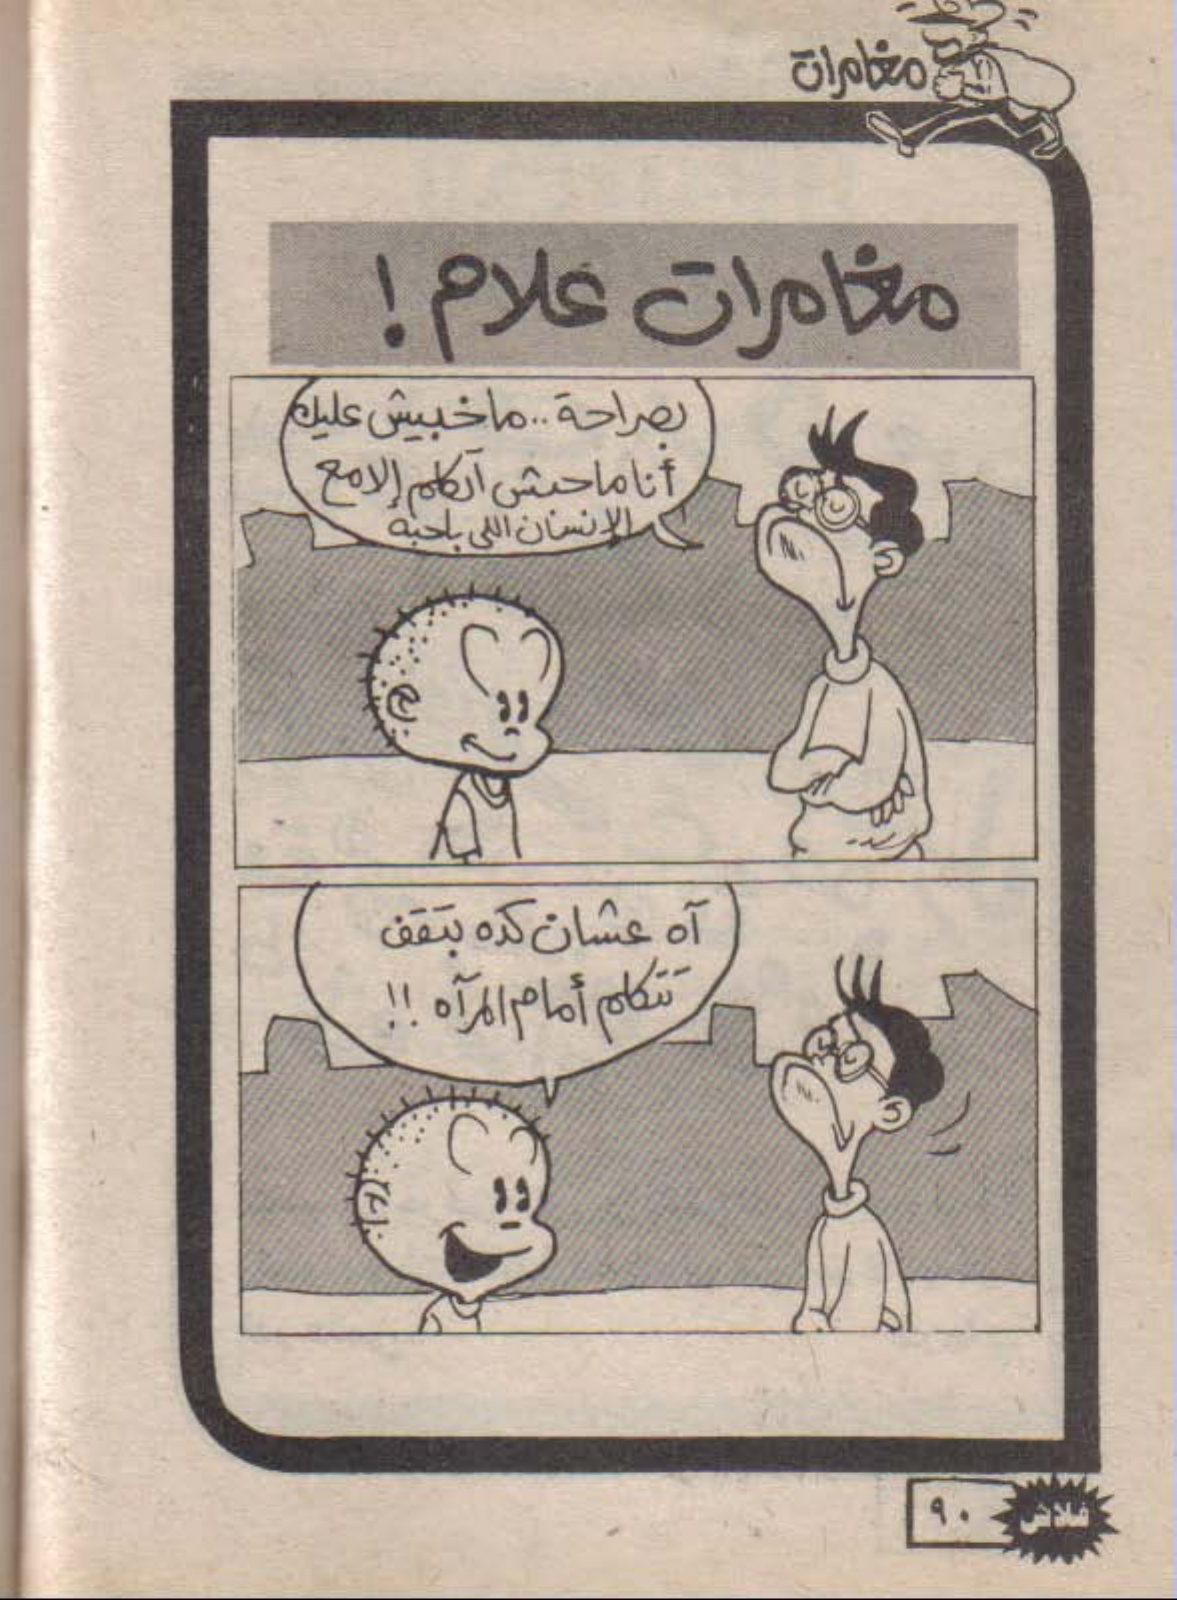 مغامرات
مغامرات علام !
بصراحة .. ماخبيش عليك
أنا ماحبش أتكلم إلا مع
الإنسان اللي باحبه
آه عشان كده بتقف
تتكلم أمام المرآه !!
فلاش
٩٠